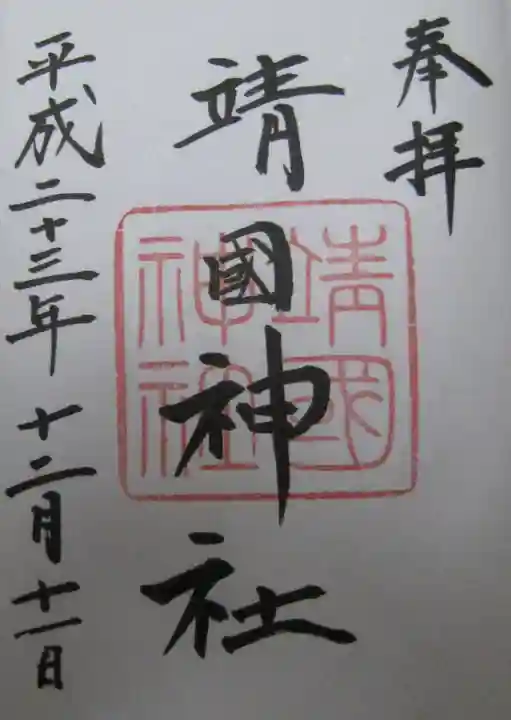 奉拝
靖國神社
靖國
神社
平成二十三年十二月十一日